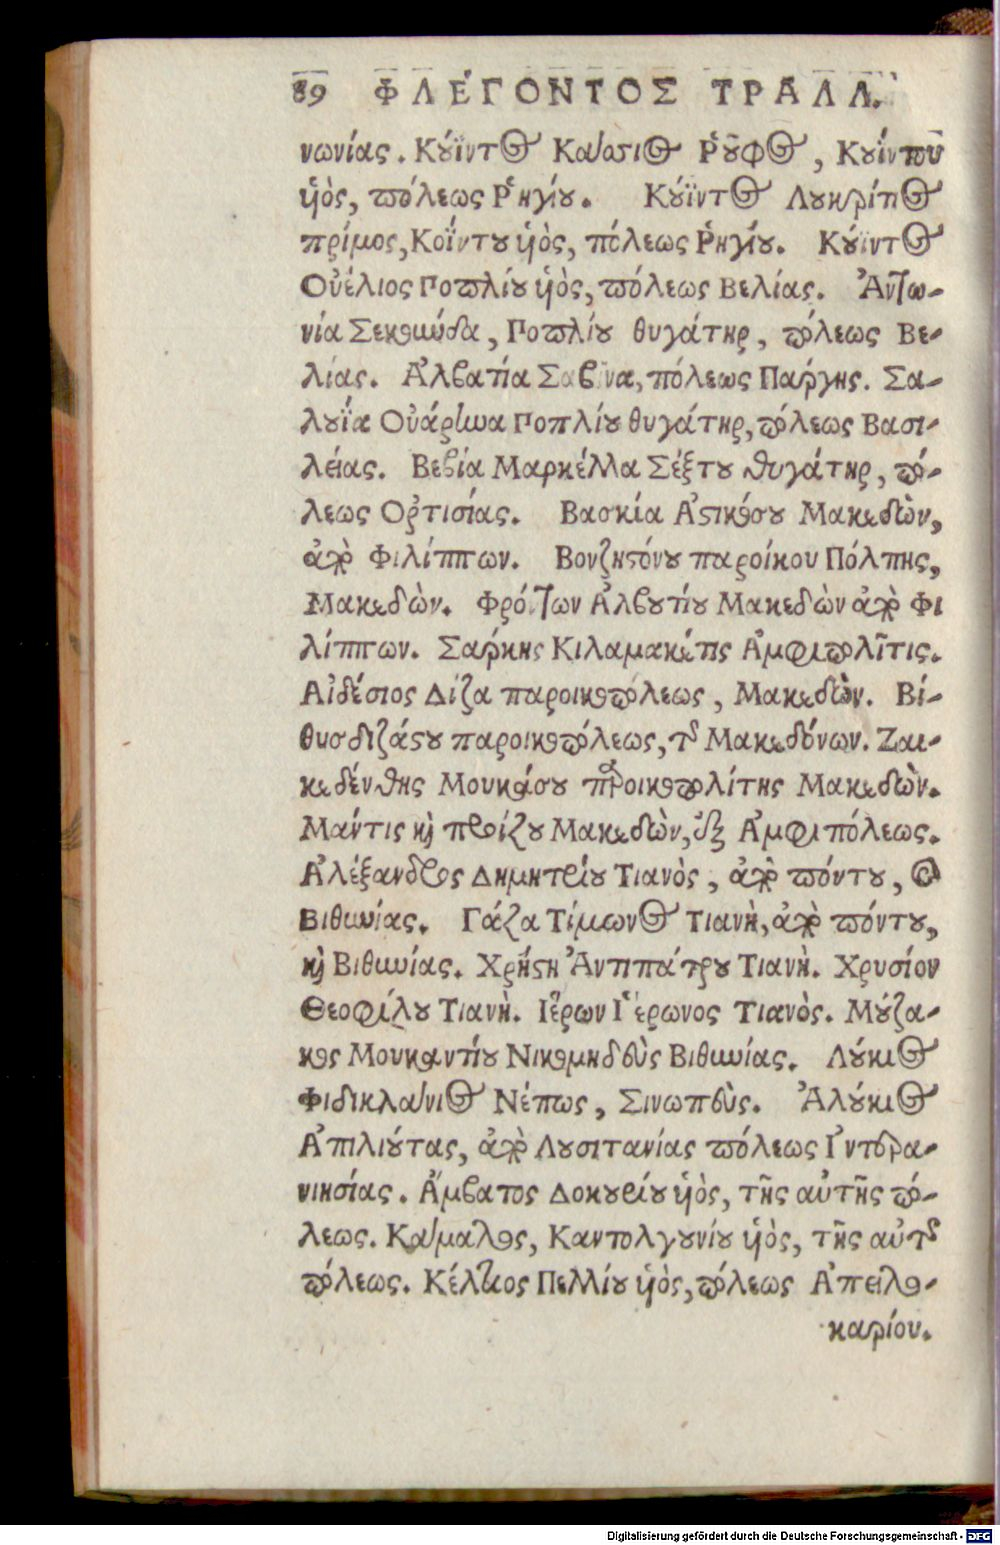 89 ΦΛΕΓΟΝΤΟΣ ΤΡΑΛΛ.
νωνίας. Κούϊντος Κάσσιος Ῥοῦφος, Κουΐντου
υἱὸς, πόλεως Ῥηγίου. Κούϊντος Λουκρίτιος
πρίμος, Κοΐντου υἱὸς, πόλεως Ῥηγίου. Κούϊντος
Οὐέλιος Ποπλίου υἱὸς, πόλεως Βελίας. Ἀντω-
νία Σεκοῦνδα, Ποπλίου θυγάτηρ, πόλεως Βε-
λίας. Ἀλβατία Σαβῖνα, πόλεως Πάρμης. Σα-
λουΐα Οὐάρηνα Ποπλίου θυγάτηρ, πόλεως Βασι-
λείας. Βεβία Μαρκέλλα Σέξτου θυγάτηρ, πό-
λεως Ορτισίας. Βασκία Ἀστικόσου Μακεδὼν,
ἀπὸ Φιλίππων. Βονζηστόνου παροίκου Πόλπης,
Μακεδὼν. Φρόντων Ἀλβουτίου Μακεδὼν ἀπὸ Φι
λίππων. Σάρκης Κιλαμακέτις Ἀμφιπολῖτις.
Αἰδέσιος Δίζα παροικοπόλεως, Μακεδὼν. Βί-
θυσδιζάστου παροικοπόλεως, τῶν Μακεδόνων. Ζαι-
κεδένθης Μουκάσου παροικοπολίτης Μακεδὼν.
Μάντις καὶ πρσίζου Μακεδὼν, ἐξ Ἀμφιπόλεως.
Ἀλέξανδρος Δημητρίου Τιανὸς, ἀπὸ πόντου, καὶ
Βιθυνίας. Γάζα Τίμωνος Τιανὴ, ἀπὸ πόντου,
καὶ Βιθυνίας. Χρήστη Ἀντιπάτρου Τιανὴ. Χρυσίον
Θεοφίλου Τιανὴ. Ἱέρων Ἱέρωνος Τιανὸς. Μούζα-
κος Μουκαντίου Νικομηδεὺς Βιθυνίας. Λούκιος
Φιδικλάνιος Νέπως, Σινωπεὺς. Ἀλούκιος
Ἀπιλιούτας, ἀπὸ Λουσιτανίας πόλεως Ἰντερα-
νιησίας. Ἄμβατος Δοκουρίου υἱὸς, τῆς αὐτῆς πό-
λεως. Κάμαλος, Καντολγουνίου υἱὸς, τῆς αὐτῆς
πόλεως. Κέλτιος Πελλίου υἱὸς, πόλεως Ἀπειλο-
καρίου.
Digitalisierung gefördert durch die Deutsche Forschungsgemeinschaft - DFG